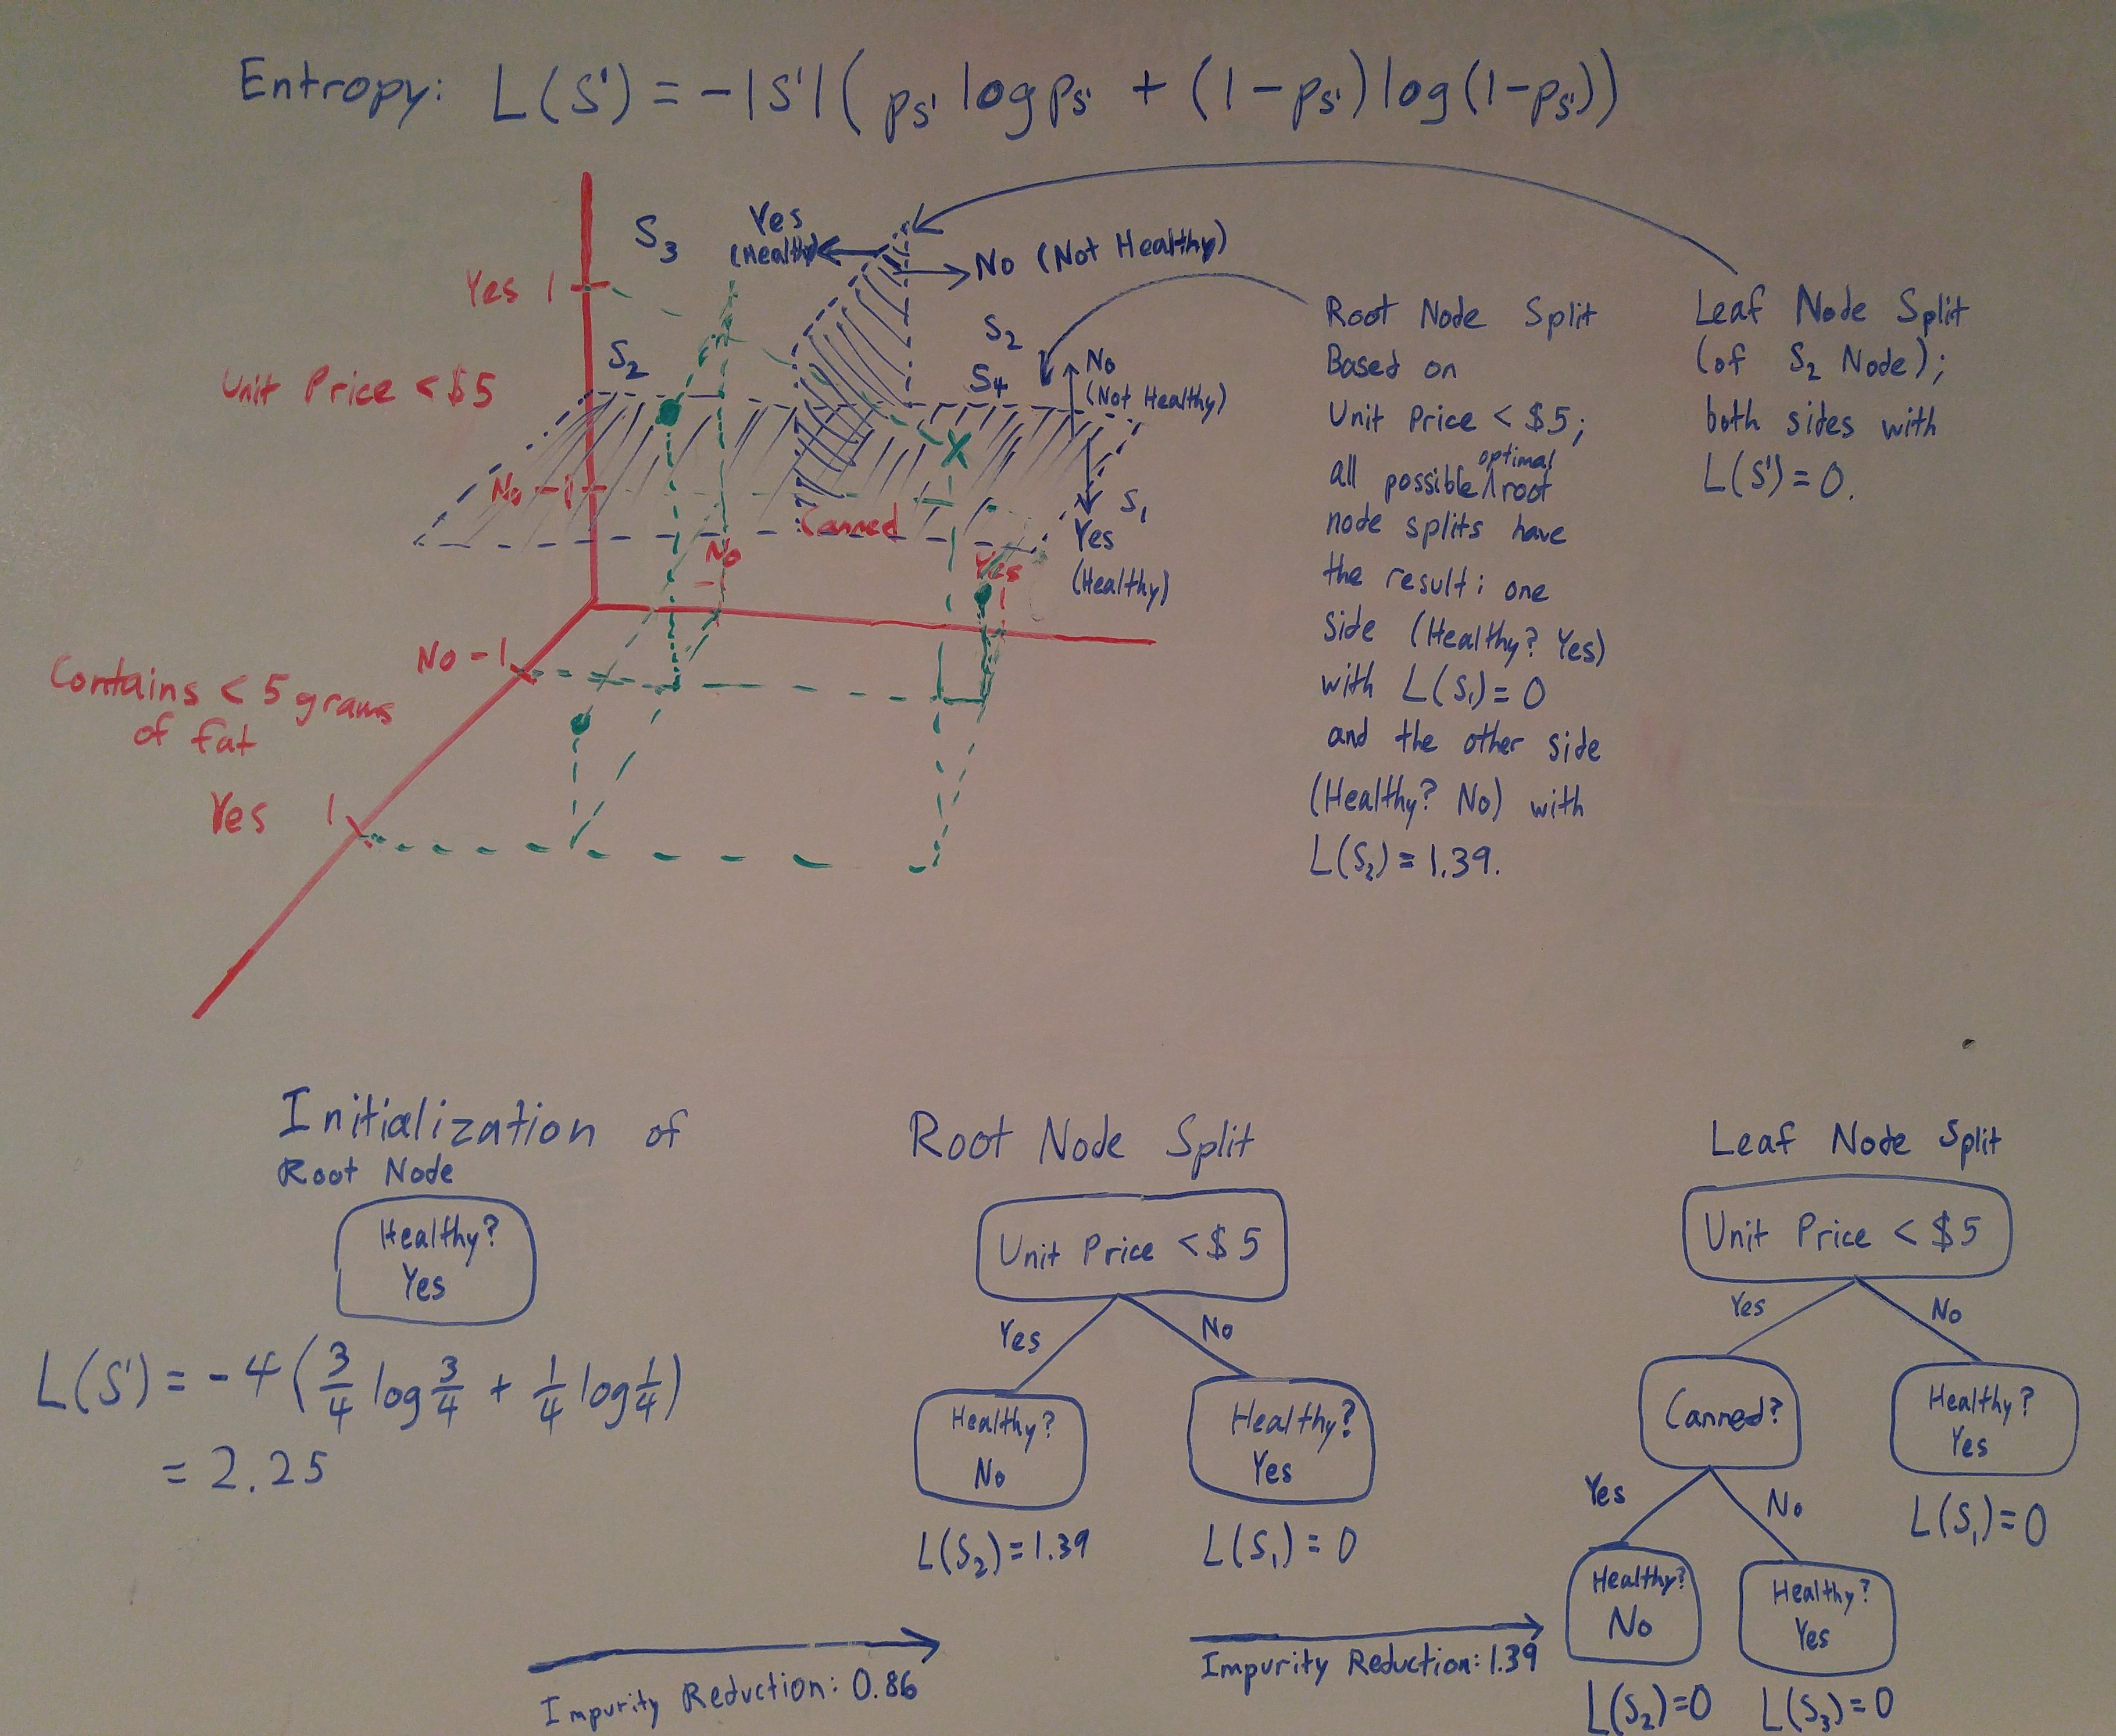 Entropy: L(S') = -|S'|( pS' log pS' + (1-pS') log(1-pS'))
S3
Yes
(Healthy)
No (Not Healthy)
Yes 1
S2
S2
S4
No
(Not Healthy)
Unit Price < $5
No -1
Canned
S1
Yes
(Healthy)
No
-1
Yes
1
No -1
Contains < 5 grams
of fat
Yes 1
Root Node Split
Based on
Unit Price < $5;
all possible ^ optimal root
node splits have
the result: one
side (Healthy? Yes)
with L(S1) = 0
and the other side
(Healthy? No) with
L(S2) = 1.39.
Leaf Node Split
(of S2 Node);
both sides with
L(S') = 0.
Initialization of
Root Node
Healthy?
Yes
L(S') = -4 ( 3/4 log 3/4 + 1/4 log 1/4 )
= 2.25
Impurity Reduction: 0.86
Root Node Split
Unit Price < $5
Yes
No
Healthy?
No
Healthy?
Yes
L(S2) = 1.39
L(S1) = 0
Impurity Reduction: 1.39
Leaf Node Split
Unit Price < $5
Yes
No
Canned?
Healthy?
Yes
Yes
No
L(S1) = 0
Healthy?
No
Healthy?
Yes
L(S2)=0
L(S3)=0